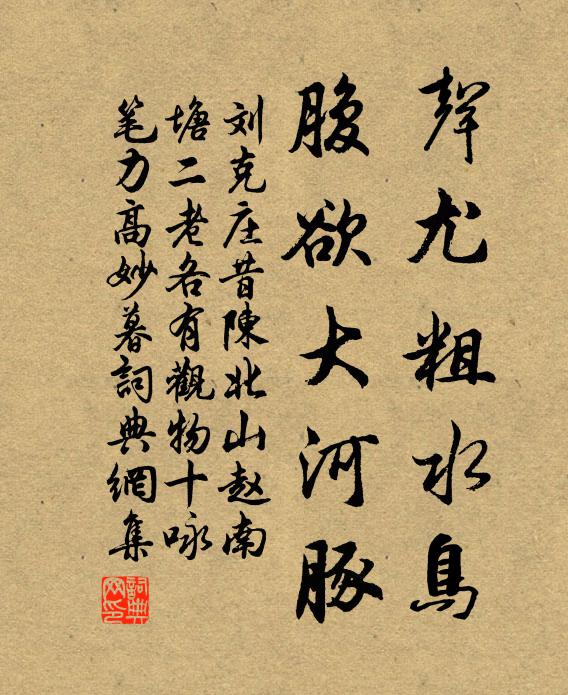 聲尤粗水鳥
腹欲大河豚
刘克庄昔陳北山赵南
塘二老各有觀物十咏
笔力高妙暮詞典網集
詞典网印